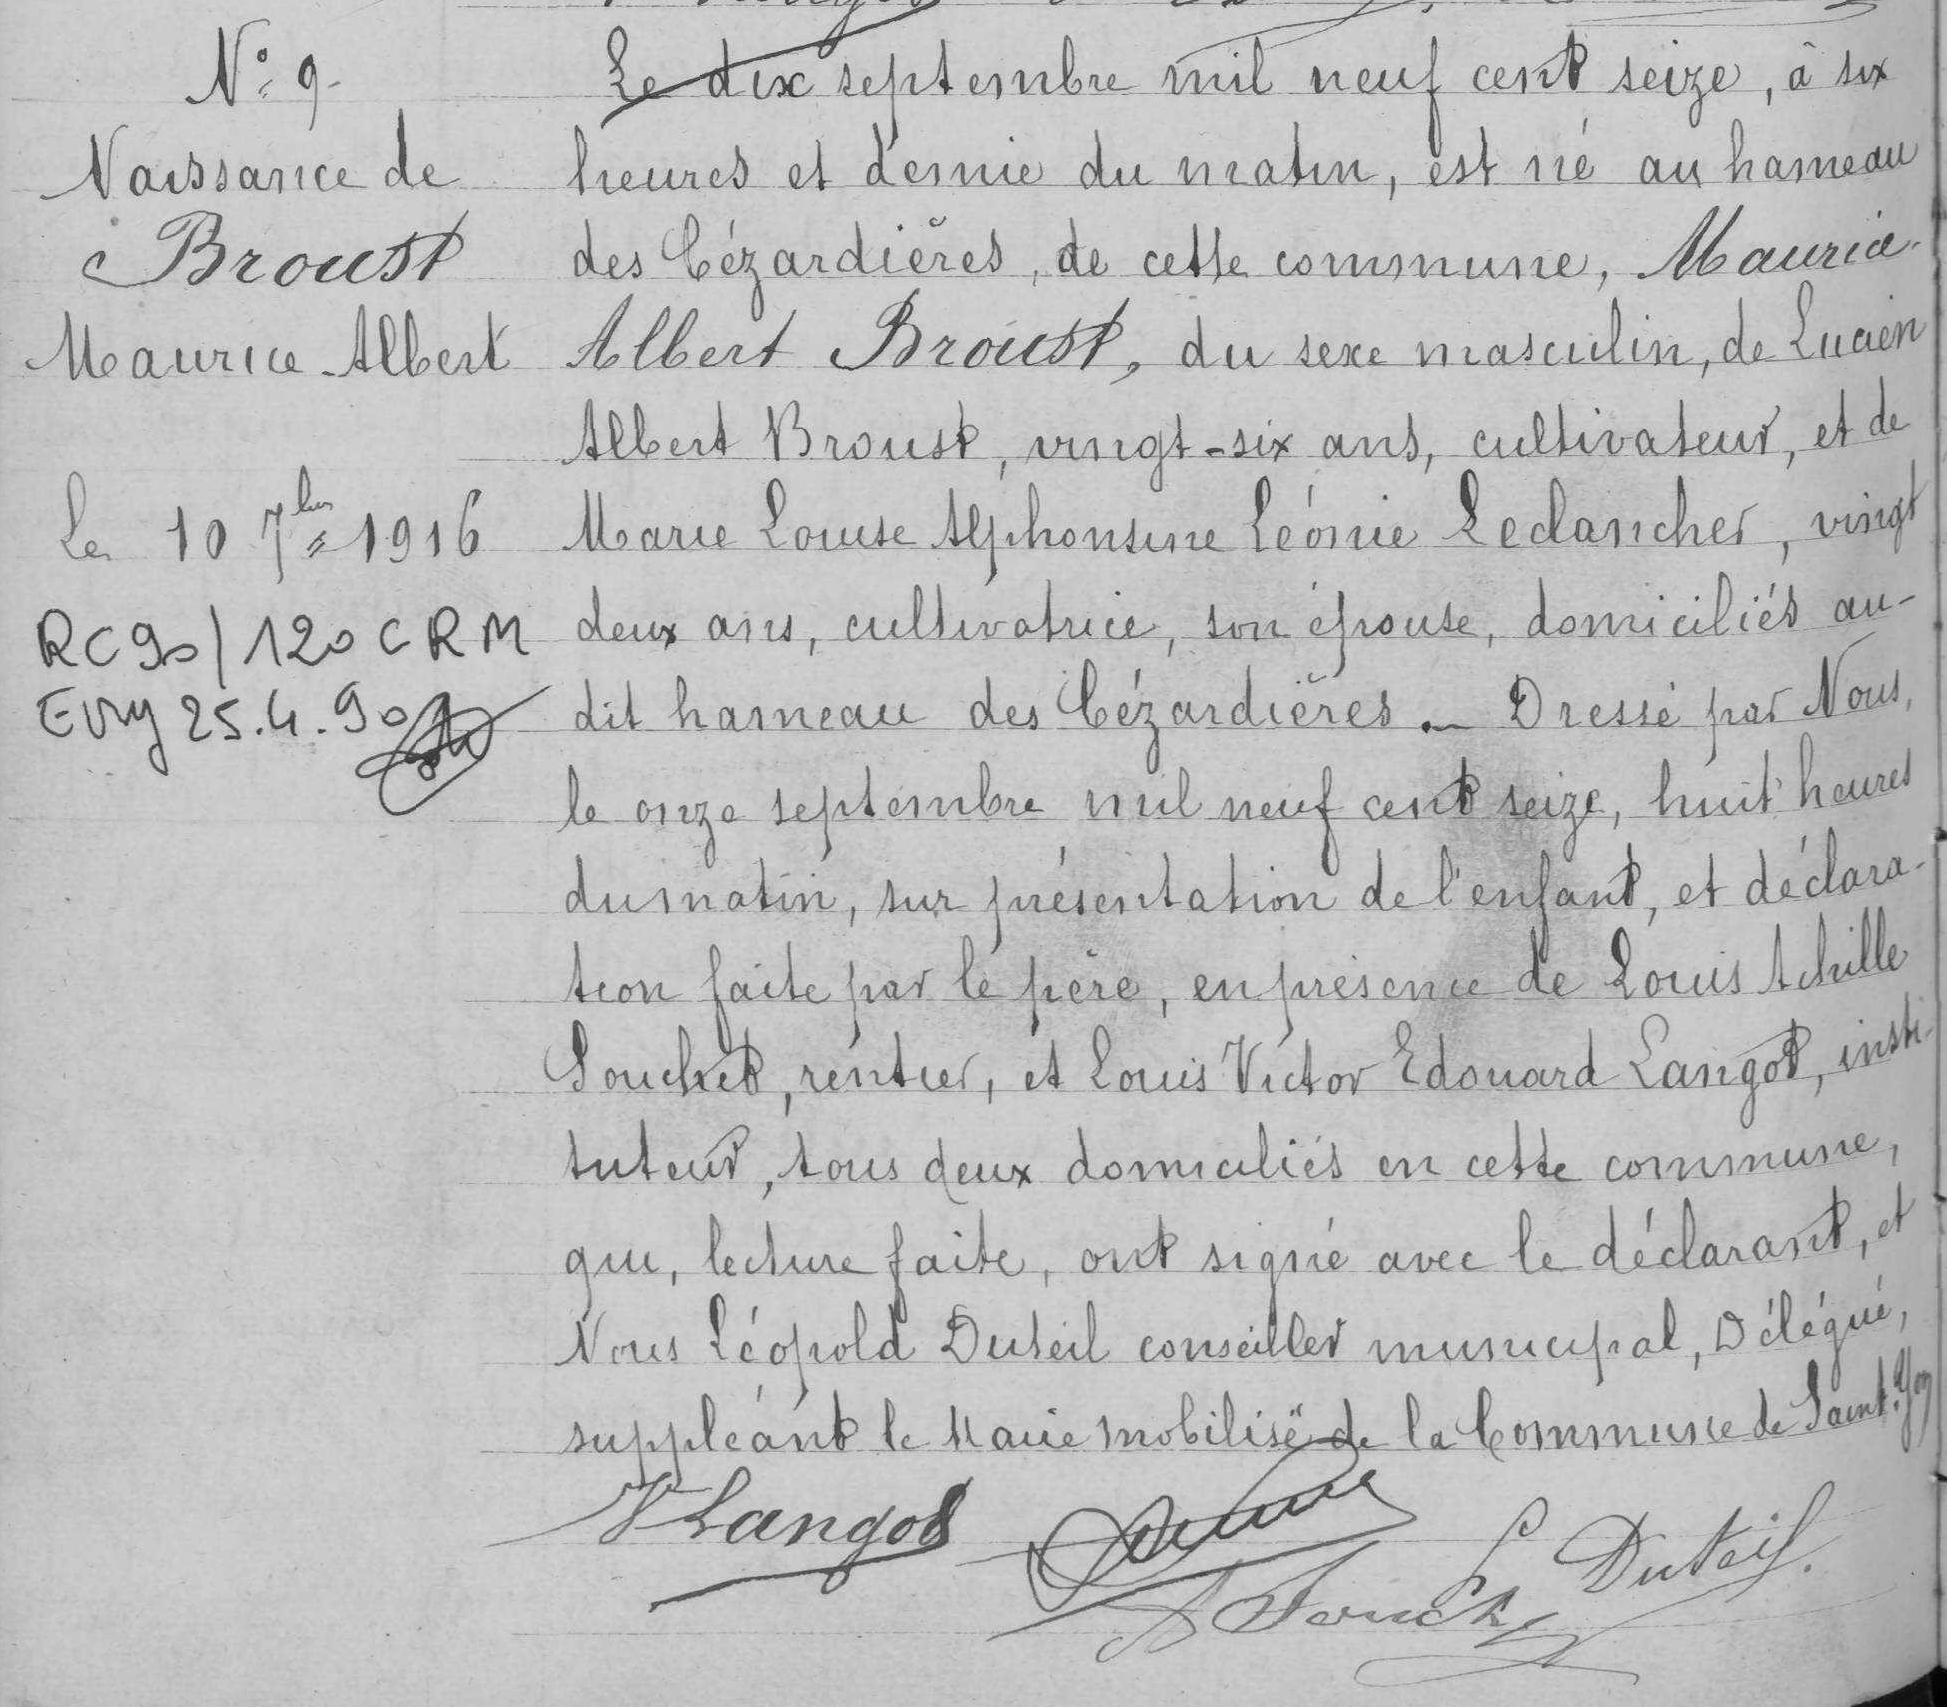 N° 9.
Naissance de
Broust
Maurice Albert
Le 10 7bre 1916
RC 90/120 CRM
Evry 25.4.90
Le dix septembre mil neuf cent seize, à six
heures et demie du matin, est né au hameau
des Cézardières, de cette commune, Maurice
Albert Broust, du sexe masculin, de Lucien
Albert Broust, vingt-six ans, cultivateur, et de
Marie Louise Alphonsine Léonie Leclancher, vingt
deux ans, cultivatrice, son épouse, domiciliés au-
dit hameau des Cézardières. _ Dressé par Nous,
le onze septembre mil neuf cent seize, huit heures
du matin, sur présentation de l'enfant, et déclara-
tion faite par le père, en présence de Louis Achille
Souchet, rentier, et Louis Victor Edouard Langot, insti-
tuteur, tous deux domiciliés en cette commune,
qui, lecture faite, ont signé avec le déclarant, et
Nous Léopold Duteil conseiller municipal, Délégué,
suppléant le Maire mobilisé de la Commune de Saint-Yon
V Langot
L Duteil.
A Souchet